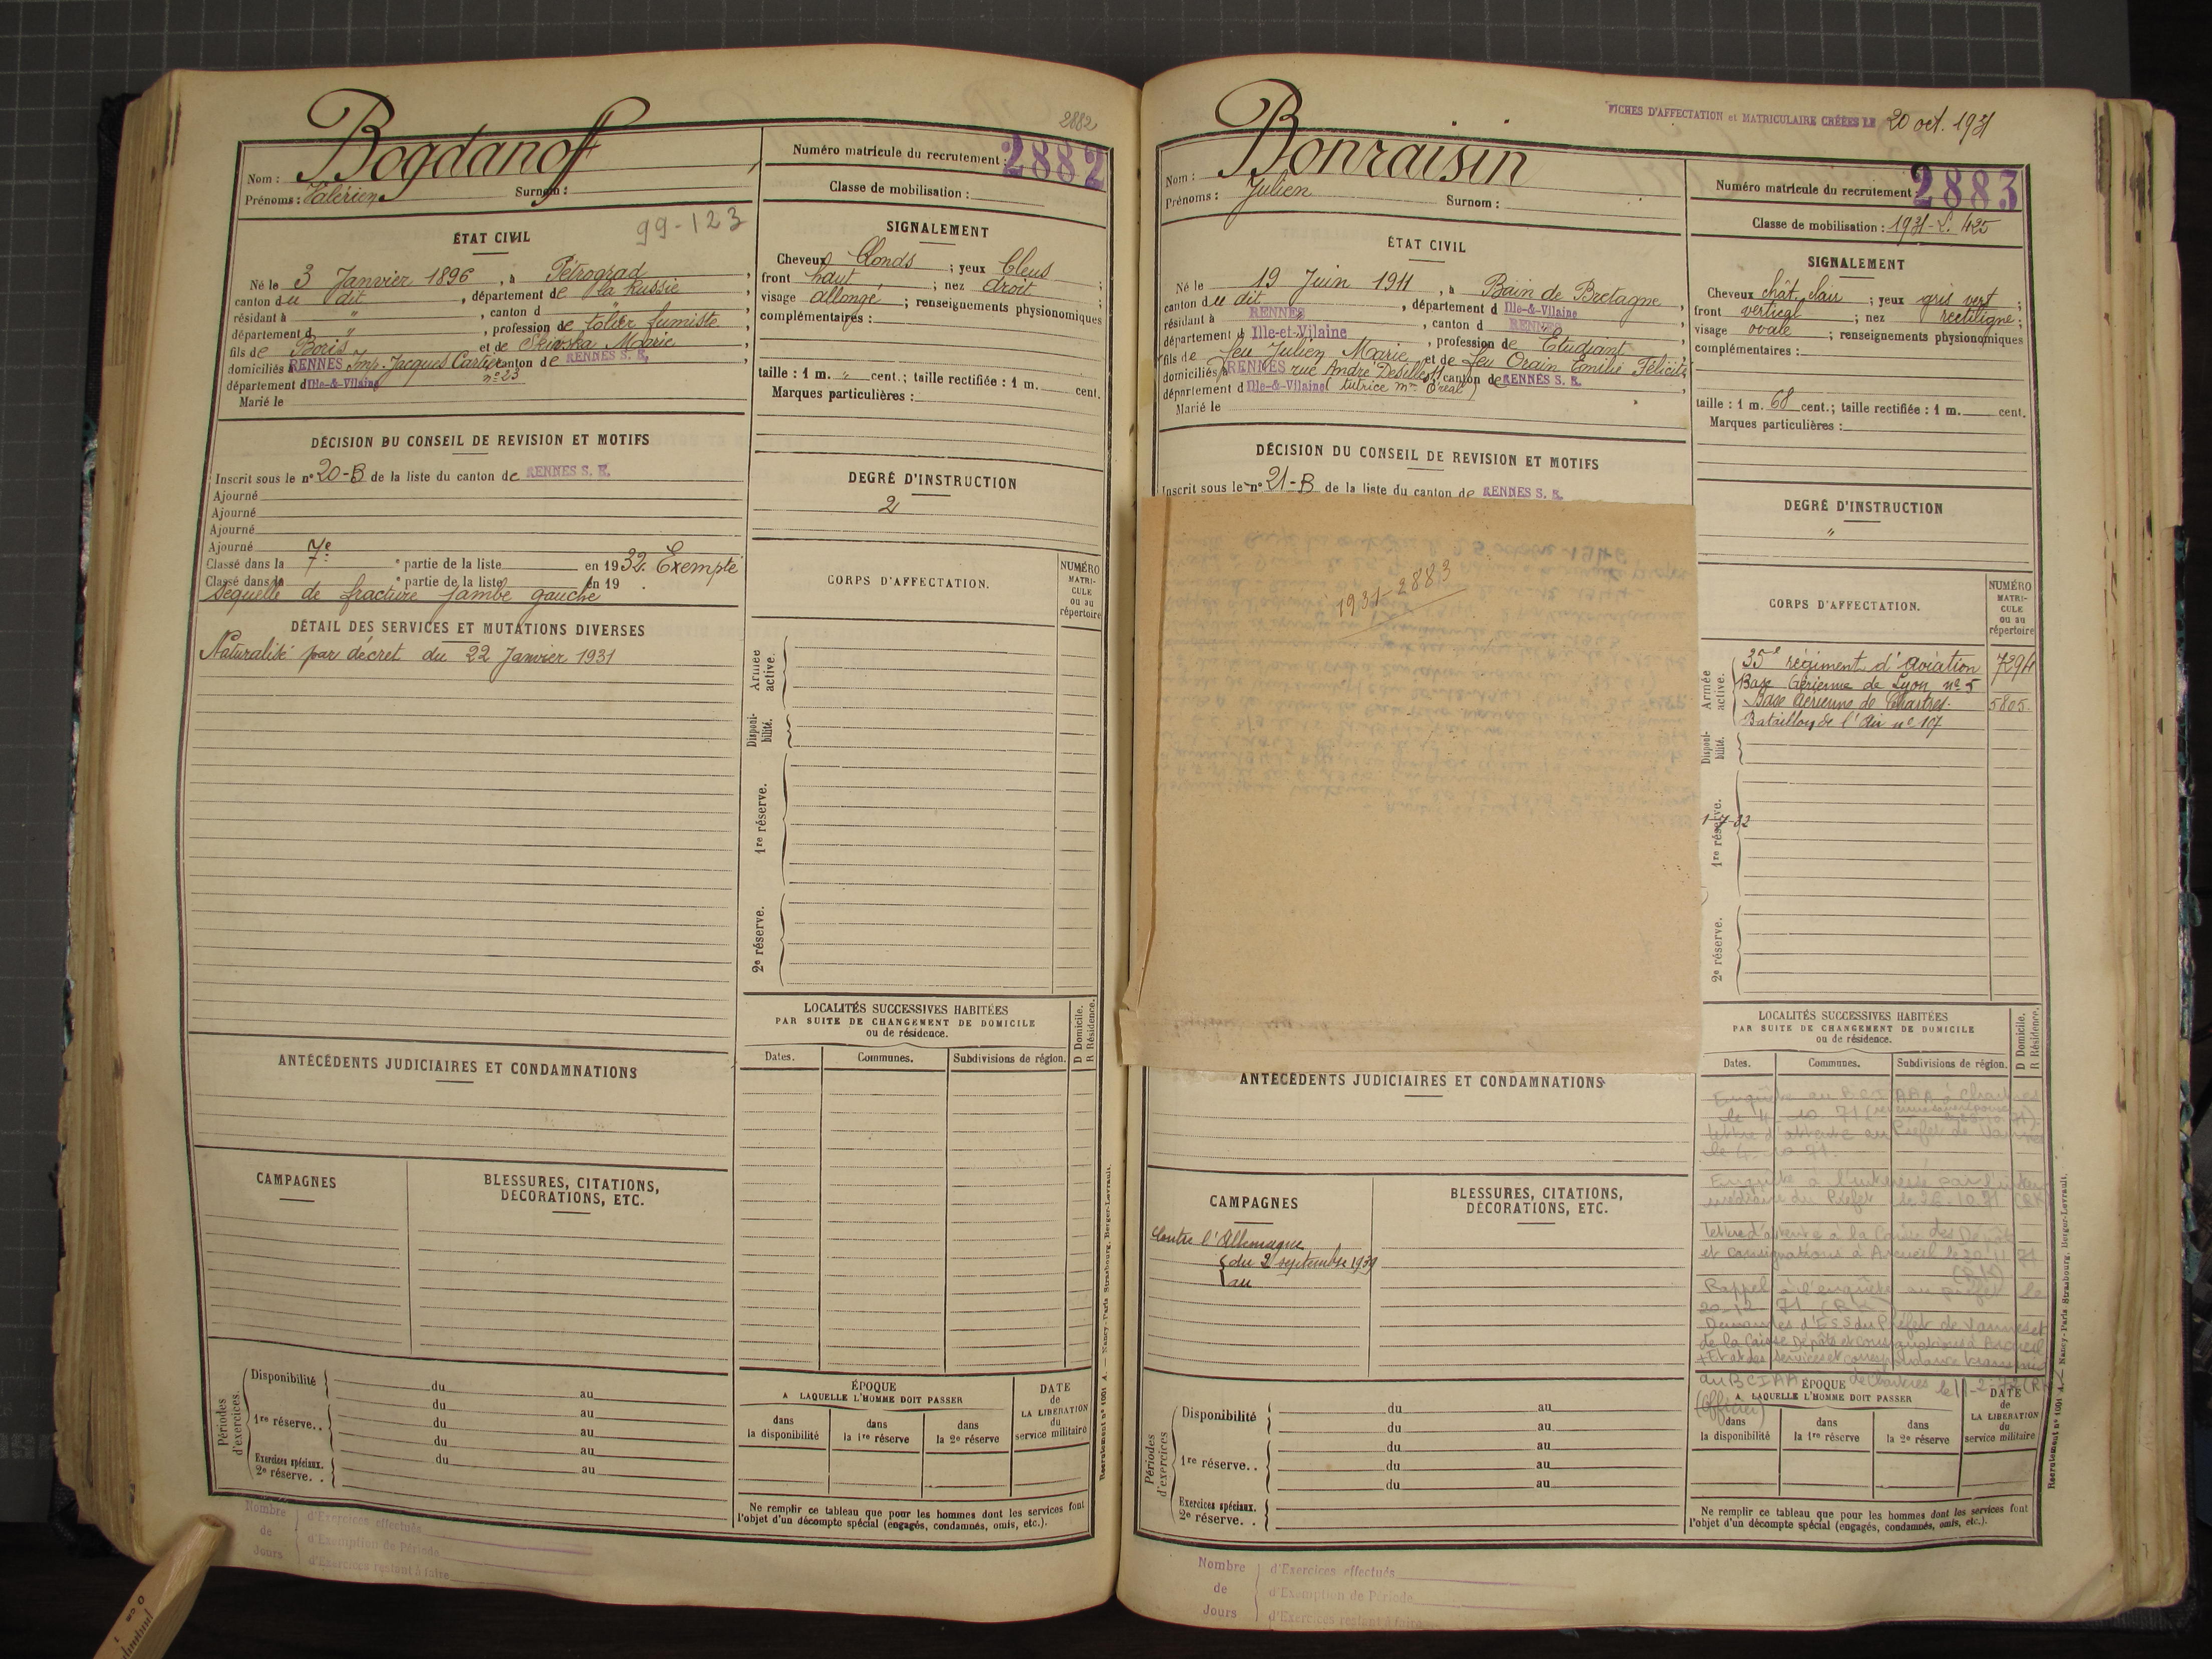 2882
Bogdanoff
Nom :
Prénoms : Valérien Surnom :
Numéro matricule du recrutement : 2882
Classe de mobilisation :
99-123
ÉTAT CIVIL
Né le 3 Janvier 1896, à Pétrograd,
canton du dit, département de la Russie,
résidant à ", canton d ",
département d ", profession de tolier fumiste,
fils de Boris et de Marie
domiciliés à RENNES Imp. Jacques Cartier canton de RENNES S. E.,
n° 23
département d Ille-&-Vilaine
Marié le
SIGNALEMENT
Cheveux blonds ; yeux bleus ;
front haut ; nez droit ;
visage allongé ; renseignements physionomiques
complémentaires :
taille : 1 m. " cent.; taille rectifiée : 1 m. cent.
Marques particulières :
DÉCISION DU CONSEIL DE REVISION ET MOTIFS
Inscrit sous le n° 20-B de la liste du canton de RENNES S. E.
Ajourné
Ajourné
Ajourné
Ajourné
Classé dans la 7e partie de la liste en 1932. Exempté
Classé dans la e partie de la liste en 19 .
Séquelle de fracture jambe gauche
DEGRÉ D'INSTRUCTION
2
DÉTAIL DES SERVICES ET MUTATIONS DIVERSES
Naturalisé par décret du 22 Janvier 1931
CORPS D'AFFECTATION.
NUMÉRO
MATRI-
CULE
ou au
répertoire
Armée
active.
Disponi-
bilité.
1re réserve.
2e réserve.
LOCALITÉS SUCCESSIVES HABITÉES
PAR SUITE DE CHANGEMENT DE DOMICILE
ou de résidence.
D Domicile.
R Résidence.
Dates. Communes. Subdivisions de région.
ANTÉCÉDENTS JUDICIAIRES ET CONDAMNATIONS
CAMPAGNES
BLESSURES, CITATIONS,
DÉCORATIONS, ETC.
Périodes
d'exercices.
Disponibilité du au
du au
1re réserve. . du au
du au
Exercices spéciaux.
2e réserve. . du au
ÉPOQUE
A LAQUELLE L'HOMME DOIT PASSER
dans
la disponibilité
dans
la 1re réserve
dans
la 2e réserve
DATE
de
LA LIBÉRATION
du
service militaire
Ne remplir ce tableau que pour les hommes dont les services font
l'objet d'un décompte spécial (engagés, condamnés, omis, etc.).
Recrutement n° 1001 A. — Nancy-Paris-Strasbourg, Berger-Levrault.
Nombre
de
Jours
d'Exercices effectués
d'Exemption de Période
d'Exercices restant à faire
FICHES D'AFFECTATION et MATRICULAIRE CRÉÉES LE 20 oct. 1931
Bonraisin
Nom :
Prénoms : Julien Surnom :
Numéro matricule du recrutement : 2883
Classe de mobilisation : 1931
ÉTAT CIVIL
Né le 19 Juin 1911, à Bain de Bretagne,
canton du dit, département d Ille-&-Vilaine
résidant à RENNES, canton d RENNES
département d Ille-et-Vilaine, profession de Etudiant
fils de feu Julien Marie et de feu Orain Emilie Félicité
domiciliés à RENNES rue André canton de RENNES S. E.
département d Ille-&-Vilaine (tutrice
Marié le
SIGNALEMENT
Cheveux chât. clair ; yeux gris vert ;
front vertical ; nez rectiligne ;
visage ovale ; renseignements physionomiques
complémentaires :
taille : 1 m. 68 cent.; taille rectifiée : 1 m. cent.
Marques particulières :
DÉCISION DU CONSEIL DE REVISION ET MOTIFS
Inscrit sous le n° 21-B de la liste du canton de RENNES S. E.
1931-2883
DEGRÉ D'INSTRUCTION
"
CORPS D'AFFECTATION.
NUMÉRO
MATRI-
CULE
ou au
répertoire
Armée
active.
35e régiment d'aviation
Base Aérienne de Lyon n° 5
Base Aérienne de Chartres. 5805
Bataillon de l'Air n° 107
Disponi-
bilité.
1re réserve.
2e réserve.
LOCALITÉS SUCCESSIVES HABITÉES
PAR SUITE DE CHANGEMENT DE DOMICILE
ou de résidence.
D Domicile.
R Résidence.
Dates. Communes. Subdivisions de région.
Enquête au à Chartres
le 4 10 71
lettre d'attente au Préfet de Vannes
le 4-10 71.
Enquête à l'intéressé par l'inter
médiaire du Préfet
lettre d'attente à la Caisse des Dépôts
et consignations à Arcueil
Rappel à l'enquête au préfet le
20-12-71
du Préfet de Vannes et
de la Caisse Dépôts et consignations à Arcueil
(Officier)
ANTÉCÉDENTS JUDICIAIRES ET CONDAMNATIONS
CAMPAGNES
Contre l'Allemagne
du 2 septembre 1939
au
BLESSURES, CITATIONS,
DÉCORATIONS, ETC.
Périodes
d'exercices
Disponibilité du au
du au
1re réserve. . du au
du au
du au
Exercices spéciaux.
2e réserve. .
ÉPOQUE
A LAQUELLE L'HOMME DOIT PASSER
dans
la disponibilité
dans
la 1re réserve
dans
la 2e réserve
DATE
de
LA LIBÉRATION
du
service militaire
Ne remplir ce tableau que pour les hommes dont les services font
l'objet d'un décompte spécial (engagés, condamnés, omis, etc.).
Recrutement n° 1001 A. — Nancy-Paris-Strasbourg, Berger-Levrault.
Nombre
de
Jours
d'Exercices effectués
d'Exemption de Période
d'Exercices restant à faire